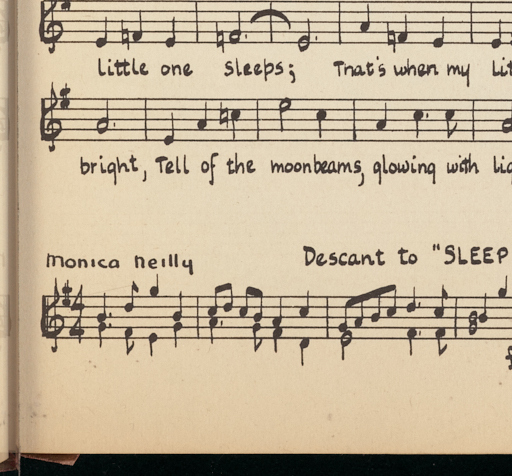 Little one sleeps; That's when my
bright, Tell of the moonbeams, glowing with
Monica Neilly
Descant to "SLEEP